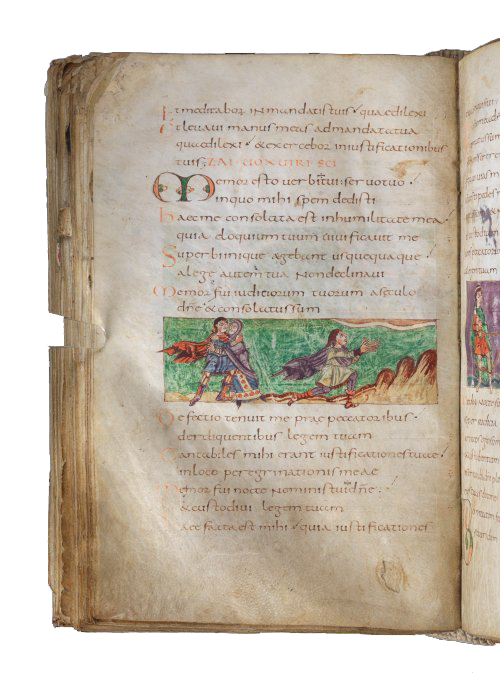 Et meditabor in mandatis tuis quae dilexi
Et levavi manus meas ad mandata tua
quae dilexi & exercebor in iustificationibus
tuis; ZAI UOX UIRI SCI
Memor esto verbi tui servo tuo
in quo mihi spem dedisti
haec me consolata est in humilitate mea
quia eloquium tuum vivificavit me
Superbi inique agebant usquequaque
a lege autem tua non declinavi
Memor fui iudiciorum tuorum a seculo
dne & consolatus sum
Defectio tenuit me prae peccatoribus
derelinquentibus legem tuam
Cantabiles mihi erant iustificationes tuae
in loco peregrinationis meae
Memor fui nocte nominis tui dne
& custodivi legem tuam
haec facta est mihi quia iustificationes